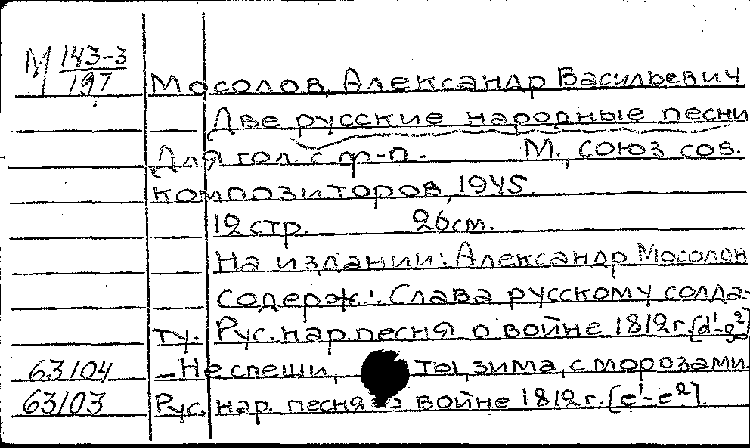 М 143-3/197
Мосолов, Александр Васильевич
Две русские народные песни
Для гол. с ф-п. М., союз сов.
композиторов, 1945.
12 стр. 26 см.
На издании: Александр Мосолов
Содерж.: Слава русскому солда-
ту. Рус. нар. песня о войне 1812 г. [d¹-g²]
63104 – Не спеши, ты, зима, с морозами
63103 Рус. нар. песня о войне 1812 г. [e¹-e²]